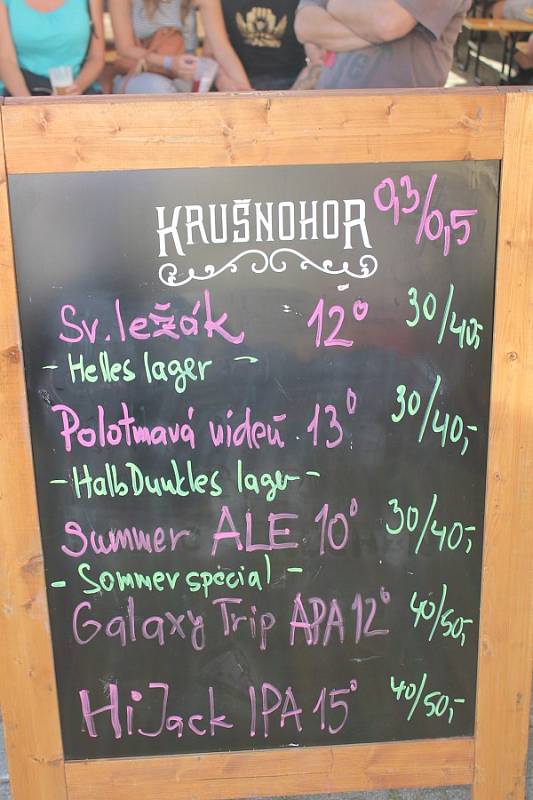 KRUŠNOHOR 0,3/0,5
Sv. ležák 12° 30/40,-
- Helles lager -
Polotmavá vídeň 13° 30/40,-
- Halb Dunkles lager -
Summer ALE 10° 30/40,-
- Sommer spécial -
Galaxy Trip APA 12° 40/50,-
HiJack IPA 15° 40/50,-